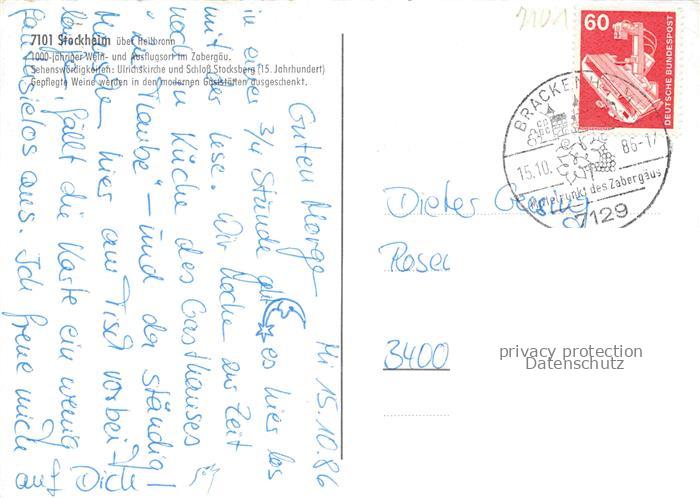 7101
7101 Stockheim über Heilbronn
1000-jähriger Wein- und Ausflugsort im Zabergäu.
Sehenswürdigkeiten: Ulrichskirche und Schloß Stocksberg (15. Jahrhundert)
Gepflegte Weine werden in den modernen Gaststätten ausgeschenkt.
Mi 15.10.86
Guten Morgen
in einer 3/4 Stunde geht es hier los
mit der Lese. Wir hocken zur Zeit
noch in Küche des Gasthauses
"Traube" – und da ständig
hier am Tisch vorbei
fällt die Karte ein wenig
fantasielos aus. Ich freue mich
auf Dich
60
DEUTSCHE BUNDESPOST
BRACKENHEIM
15.10. 86-17
Mittelpunkt des Zabergäus
7129
Dieter
3400
privacy protection
Datenschutz